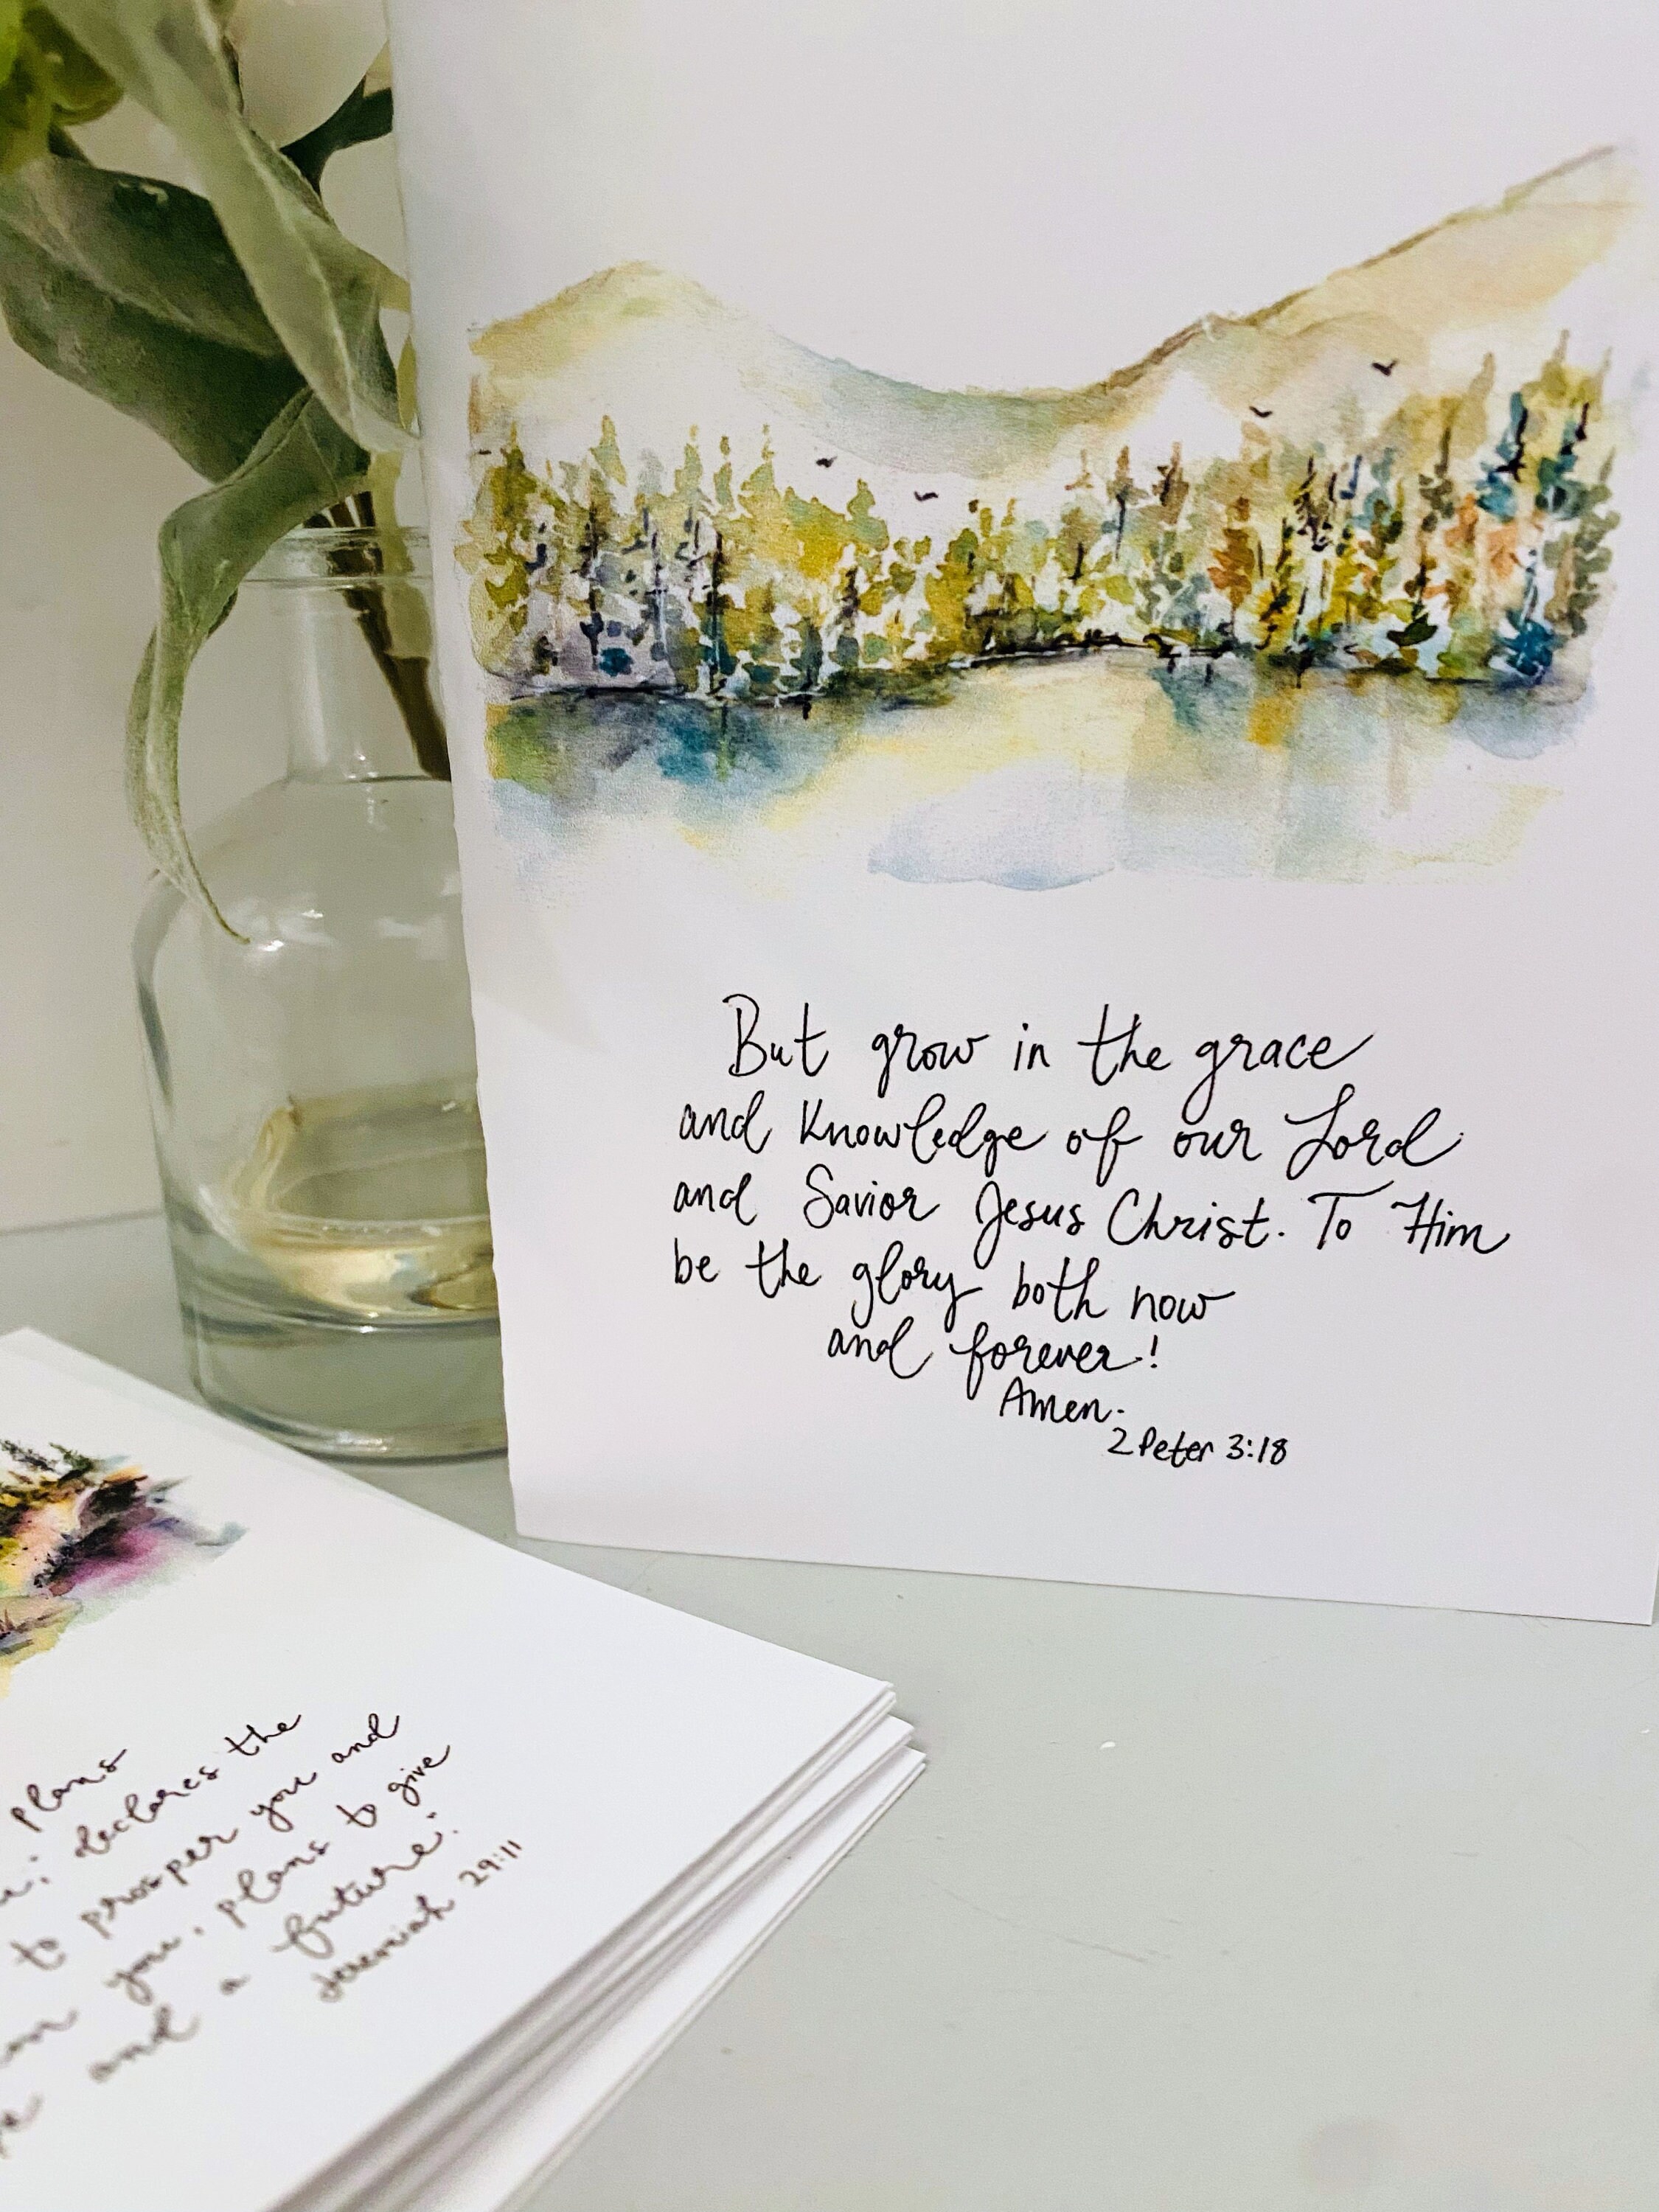 But grow in the grace
and knowledge of our Lord
and Savior Jesus Christ. To Him
be the glory both now
and forever!
Amen.
2 Peter 3:18
plans
declares the
to prosper you and
you, plans to give
and a future."
Jeremiah 29:11